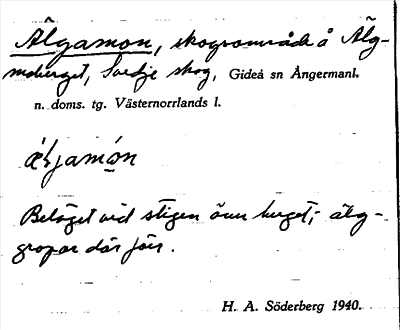 Älgamon, skogsområde å Älg-
moberget, Sardje skog, Gideå sn Ångermanl.
n. doms. tg. Västernorrlands l.
Beläget vid stigen över berget; älg-
gropar där förr.
H. A. Söderberg 1940.